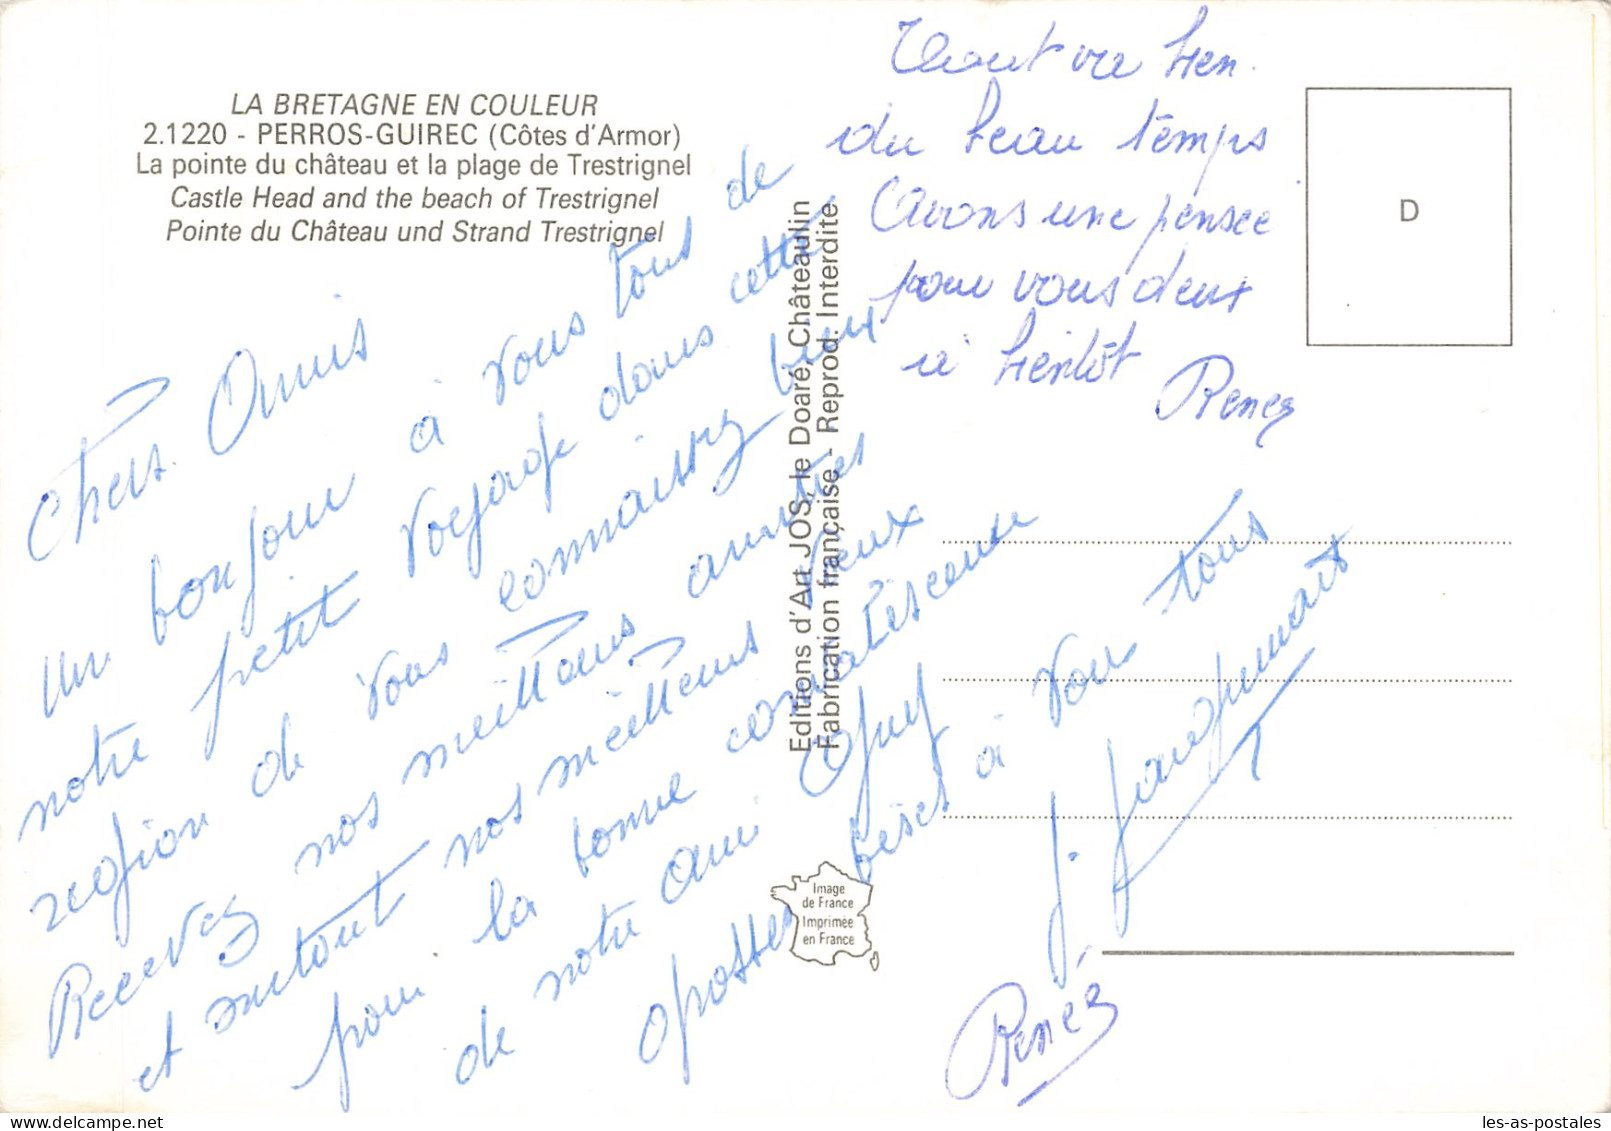 LA BRETAGNE EN COULEUR
2.1220 - PERROS-GUIREC (Côtes d'Armor)
La pointe du château et la plage de Trestrignel
Castle Head and the beach of Trestrignel
Pointe du Château und Strand Trestrignel
Chers Amis
un bonjour à vous tous de
notre petit voyage dans cette
region de vous connaissez bien
Recevez nos meilleurs amitiés
et surtout nos meilleurs veux
pour la bonne convalescence
de notre ami Guy
grosses bises à vous tous
J.
René
Editions d'Art JOS, le Doaré, Châteaulin
Fabrication française - Reprod. Interdite
Image
de France
Imprimée
en France
Tout va bien
du beau temps
avons une pensée
pour vous deux
a bientôt
René
D
les-as-postales